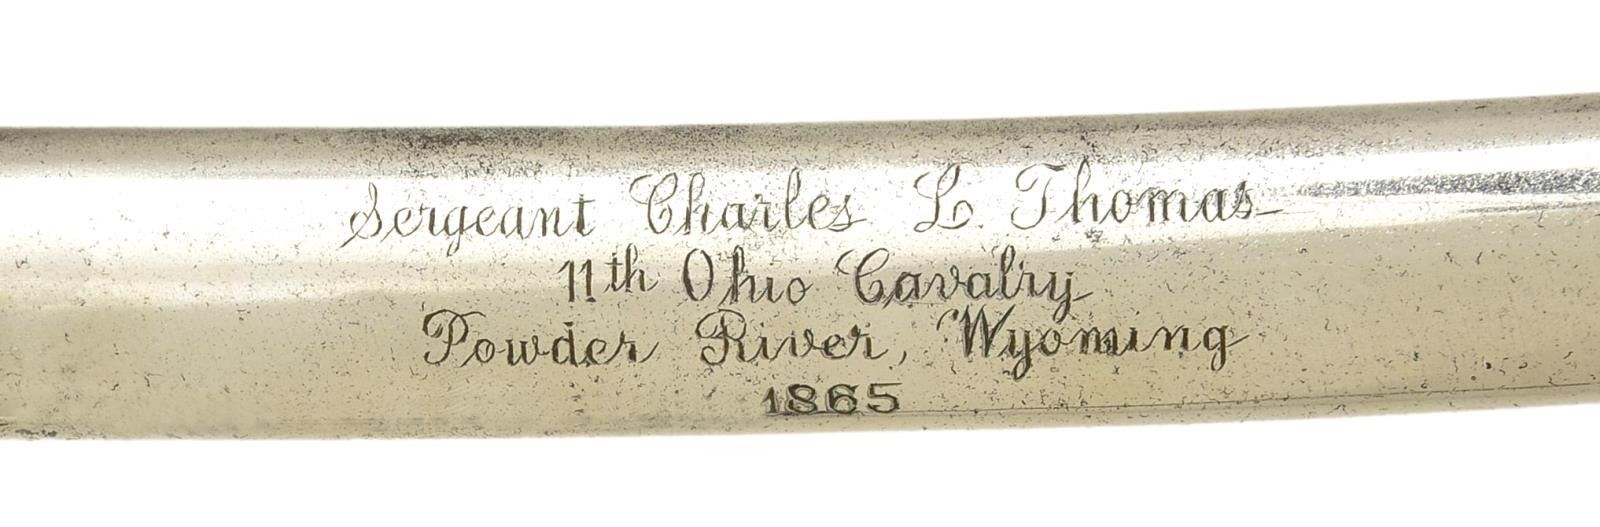 Sergeant Charles L. Thomas
11th Ohio Cavalry
Powder River, Wyoming
1865